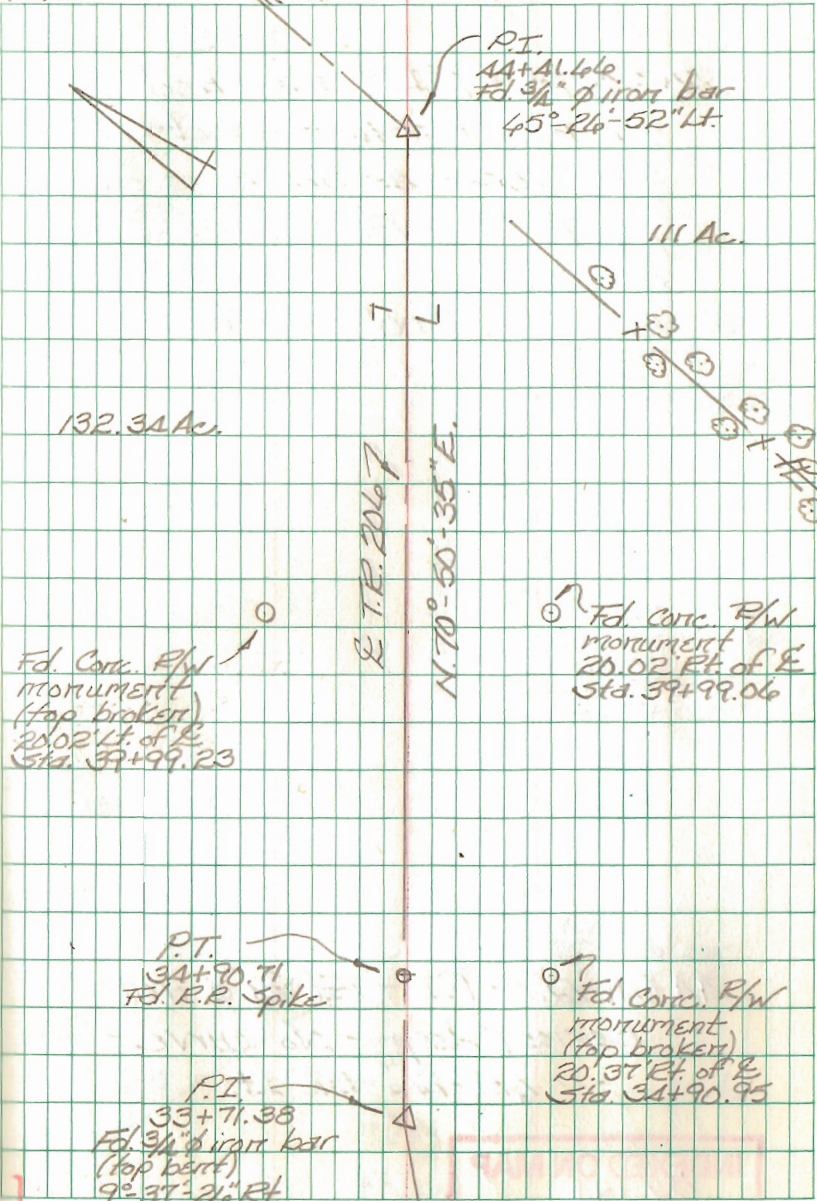 P.I.
44+41.66
Fd. 3/4" ϕ iron bar
65°-26'-52" Lt.
111 Ac.
T L
132.34 Ac.
℄ T.R. 2067
N. 70°-50'-35" E.
Fd. Conc. R/W
monument
(top broken)
20.02' Lt. of ℄
Sta. 39+99.23
Fd. Conc. R/W
monument
20.02' Rt. of ℄
Sta. 39+99.06
P.T.
34+90.71
Fd. R.R. Spike
Fd. Conc. R/W
monument
(top broken)
20.37' Rt. of ℄
Sta. 34+90.95
P.I.
33+71.38
Fd. 3/4" ϕ iron bar
(top bent)
9°-37'-26" Rt.